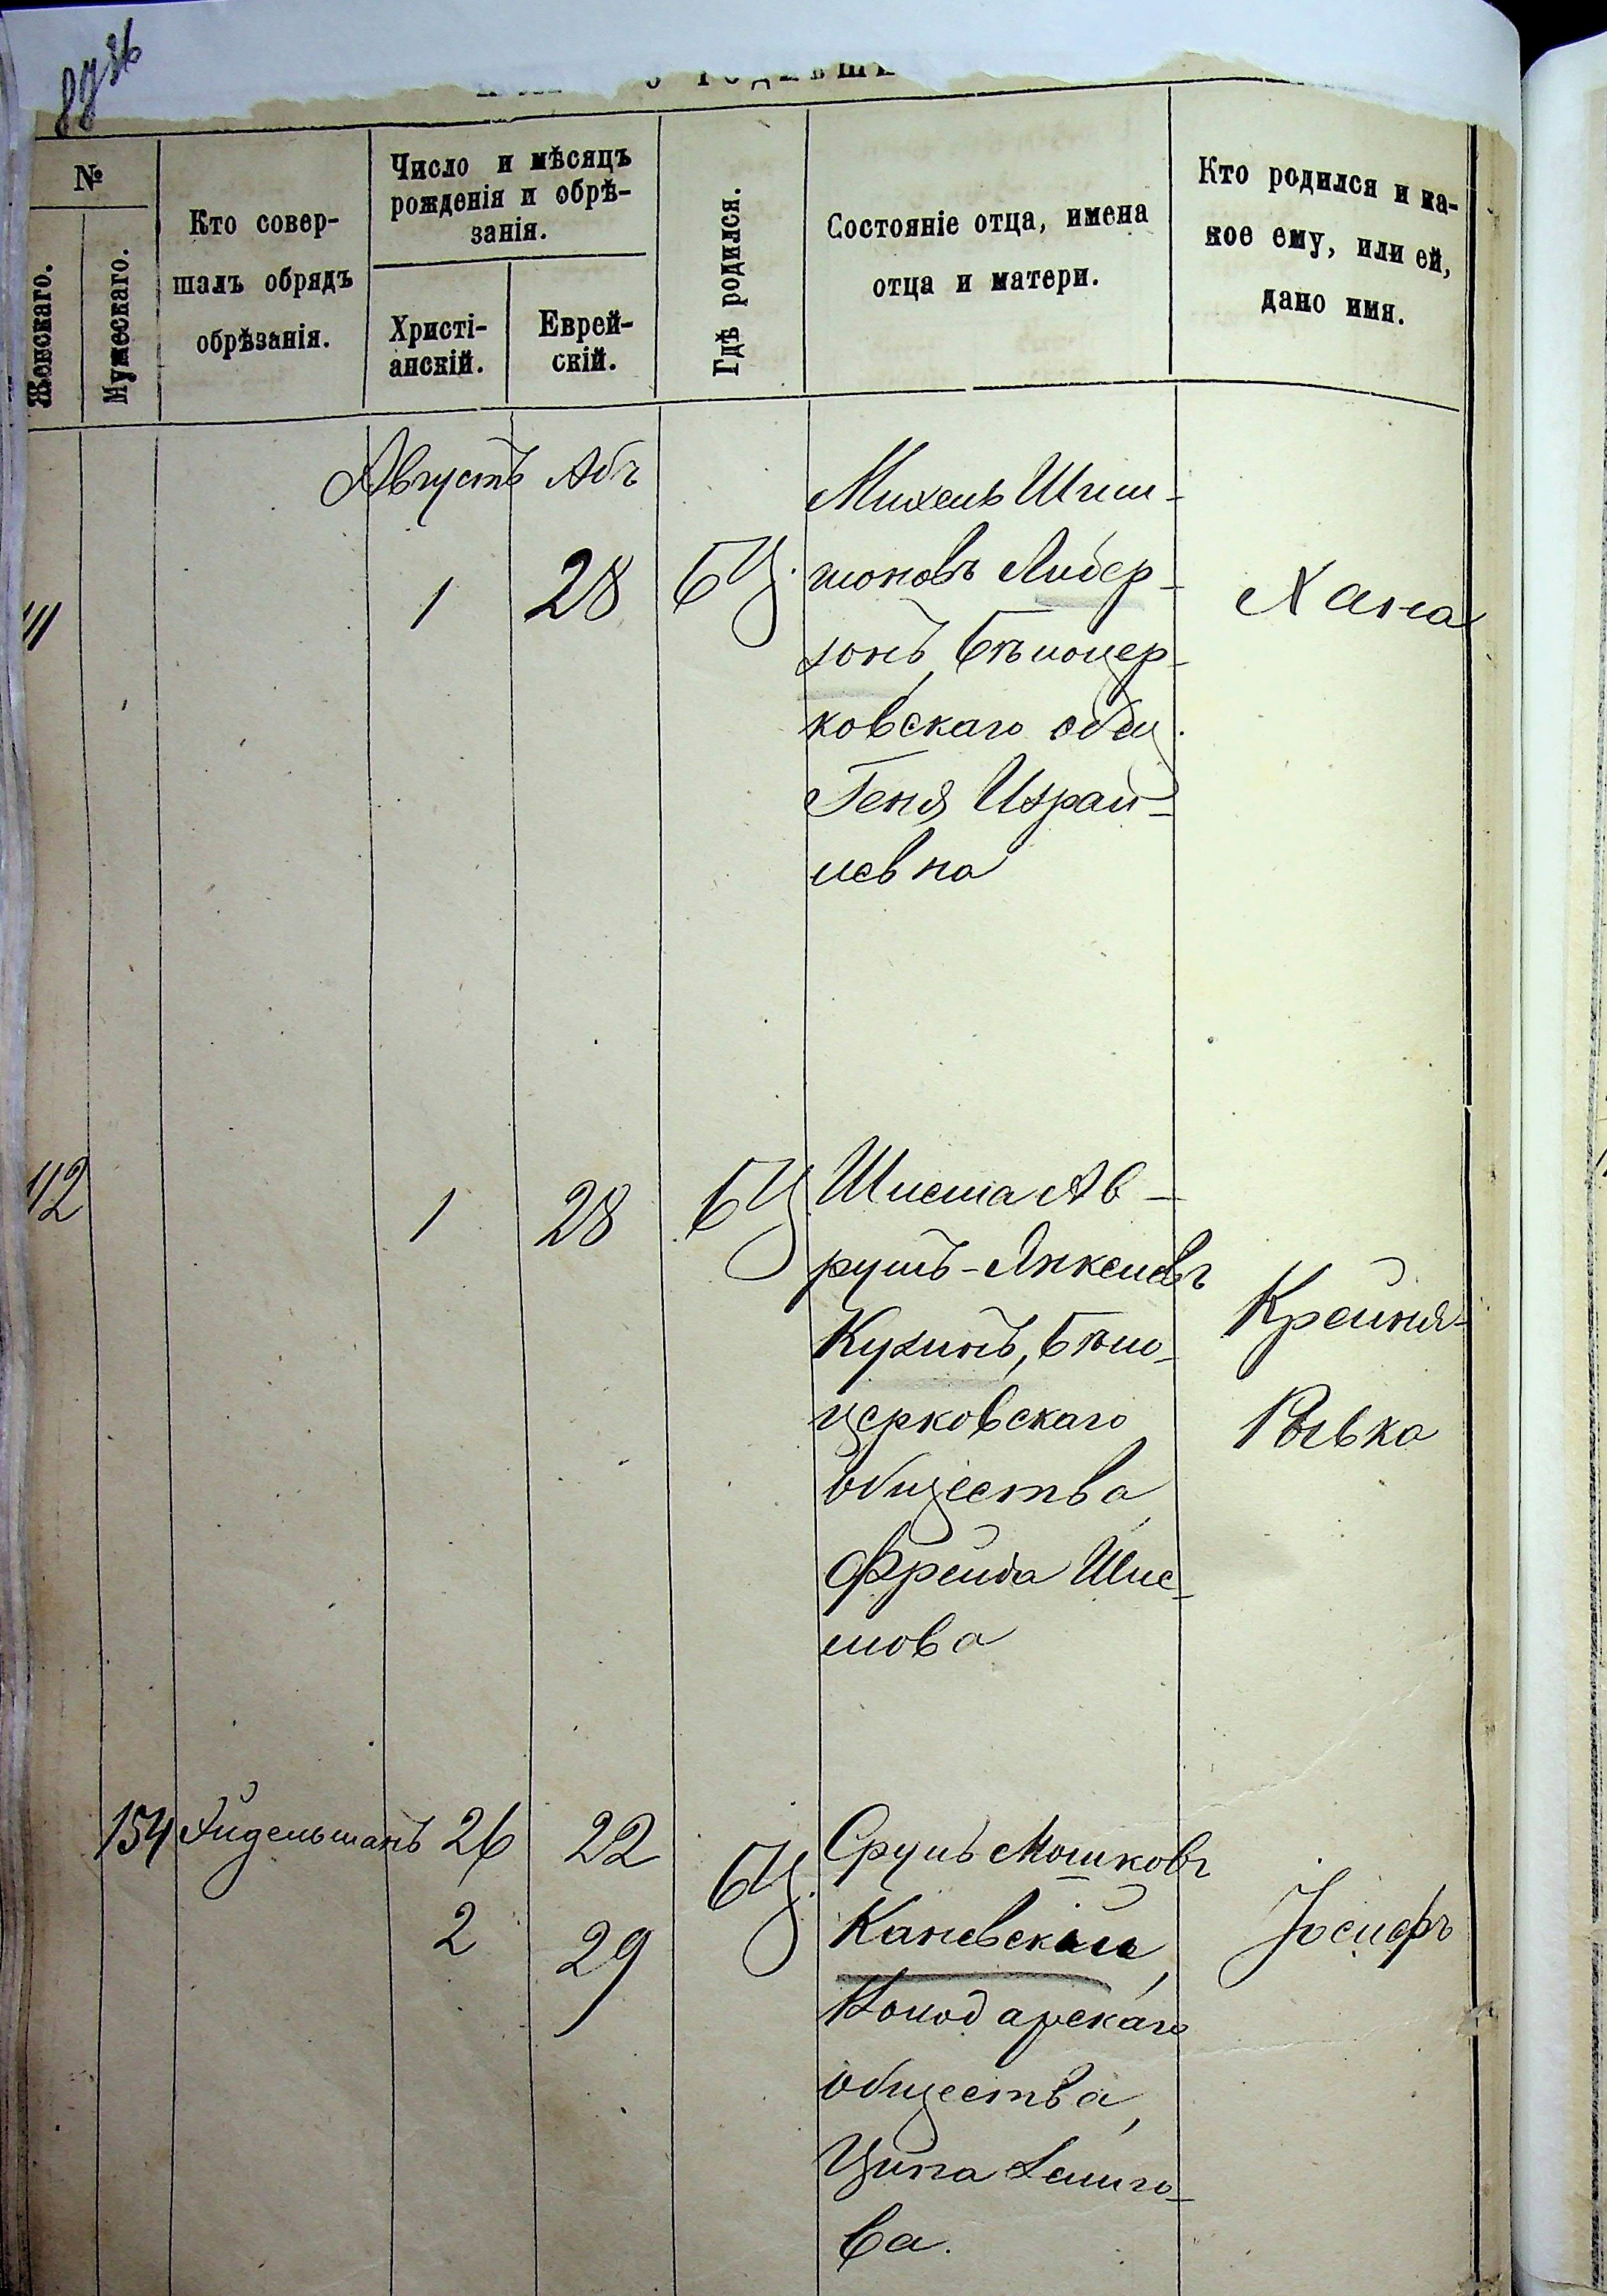 №
Женскаго.
Мужескаго.
Кто совер-
шалъ обрядъ
обрѣзанія.
Число и мѣсяцъ
рожденія и обрѣ-
занія.
Христі-
анскій.
Еврей-
скій.
Гдѣ родился.
Состояніе отца, имена
отца и матери.
Кто родился и ка-
кое ему, или ей,
дано имя.
Августъ Абъ
111 1 28 БЦ.
Михель Шли-
моновъ Либер-
зонъ, Бѣлоцер-
ковскаго общ.
Геня Израи-
левна
Хана
112 1 28 БЦ
Шлема Ав-
румъ-Янкелевъ
Кузинъ, Бѣло-
церковскаго
общества,
Фрейда Шле-
мова
Крейня-
Ривка
154 Эйдельманъ 26 22 БЦ.
2 29
Сруль Мошковъ
Каневскій,
общества,
Ципа Зелиго-
ва.
Іосифъ